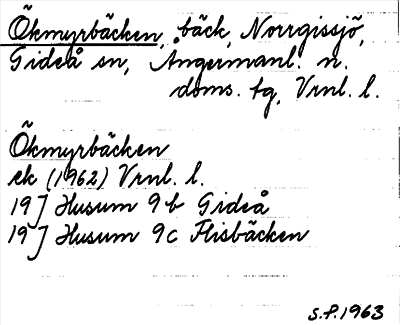 Ökmyrbäcken, bäck, Norrgissjö,
Gideå sn, Ångermanl. n.
doms. tg, Vrnl. l.
Ökmyrbäcken
ek (1962) Vrnl. l.
19J Husum 9b Gideå
19J Husum 9c Flisbäcken
S.P. 1963